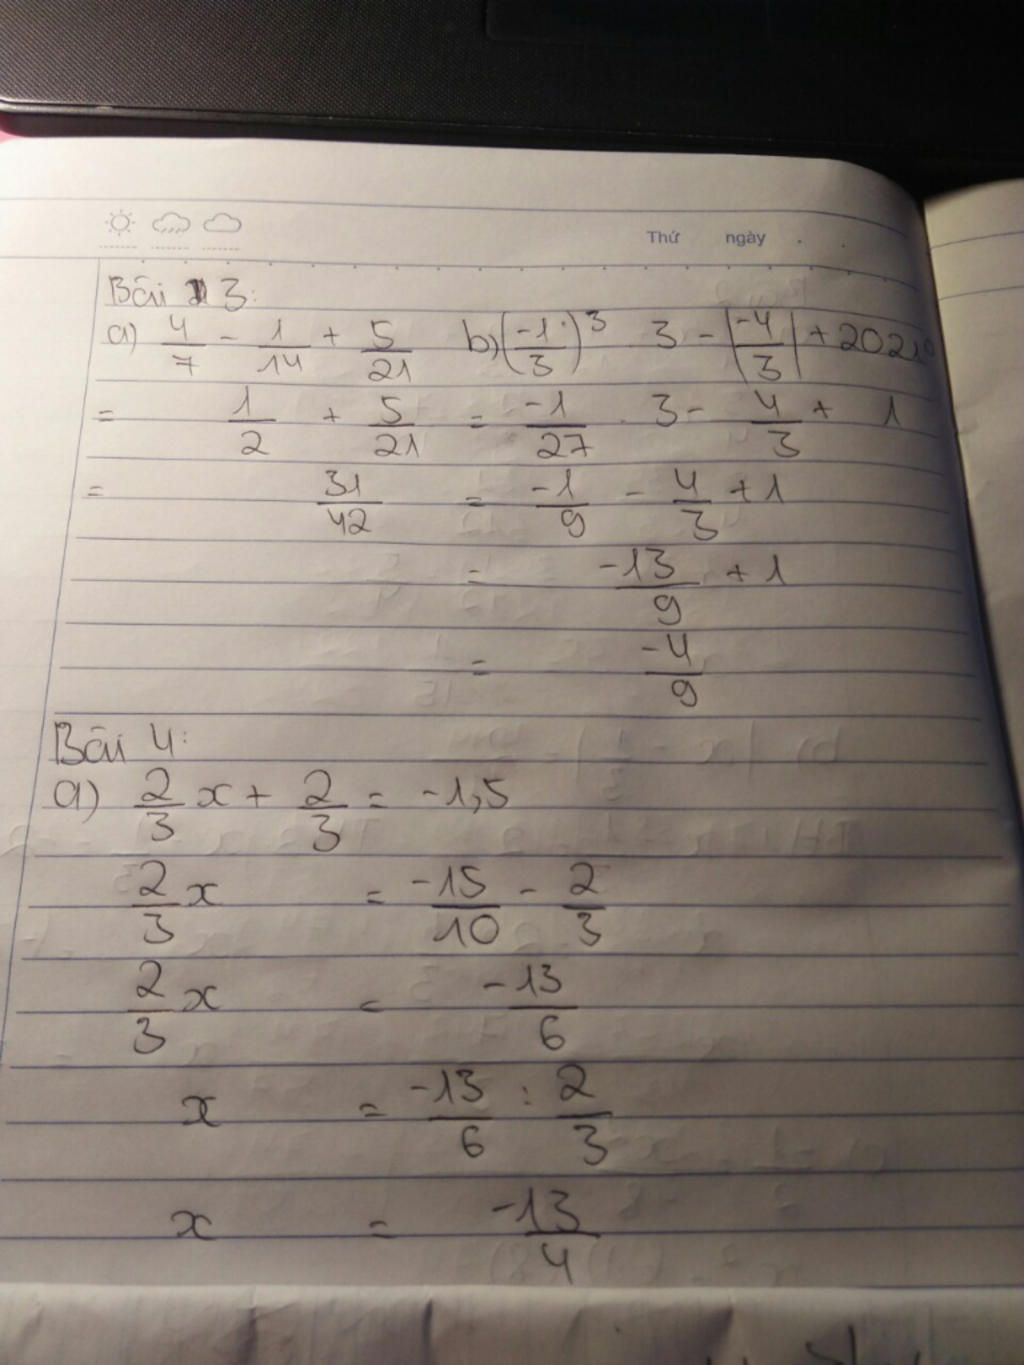 Thứ ngày
Bài 3:
a) 4/7 - 1/14 + 5/21 b) (-1/3)³ . 3 - |-4/3| + 2021⁰
= 1/2 + 5/21 = -1/27 . 3 - 4/3 + 1
= 31/42 = -1/9 - 4/3 + 1
= -13/9 + 1
= -4/9
Bài 4:
a) 2/3 x + 2/3 = -1,5
2/3 x = -15/10 - 2/3
2/3 x = -13/6
x = -13/6 : 2/3
x = -13/4